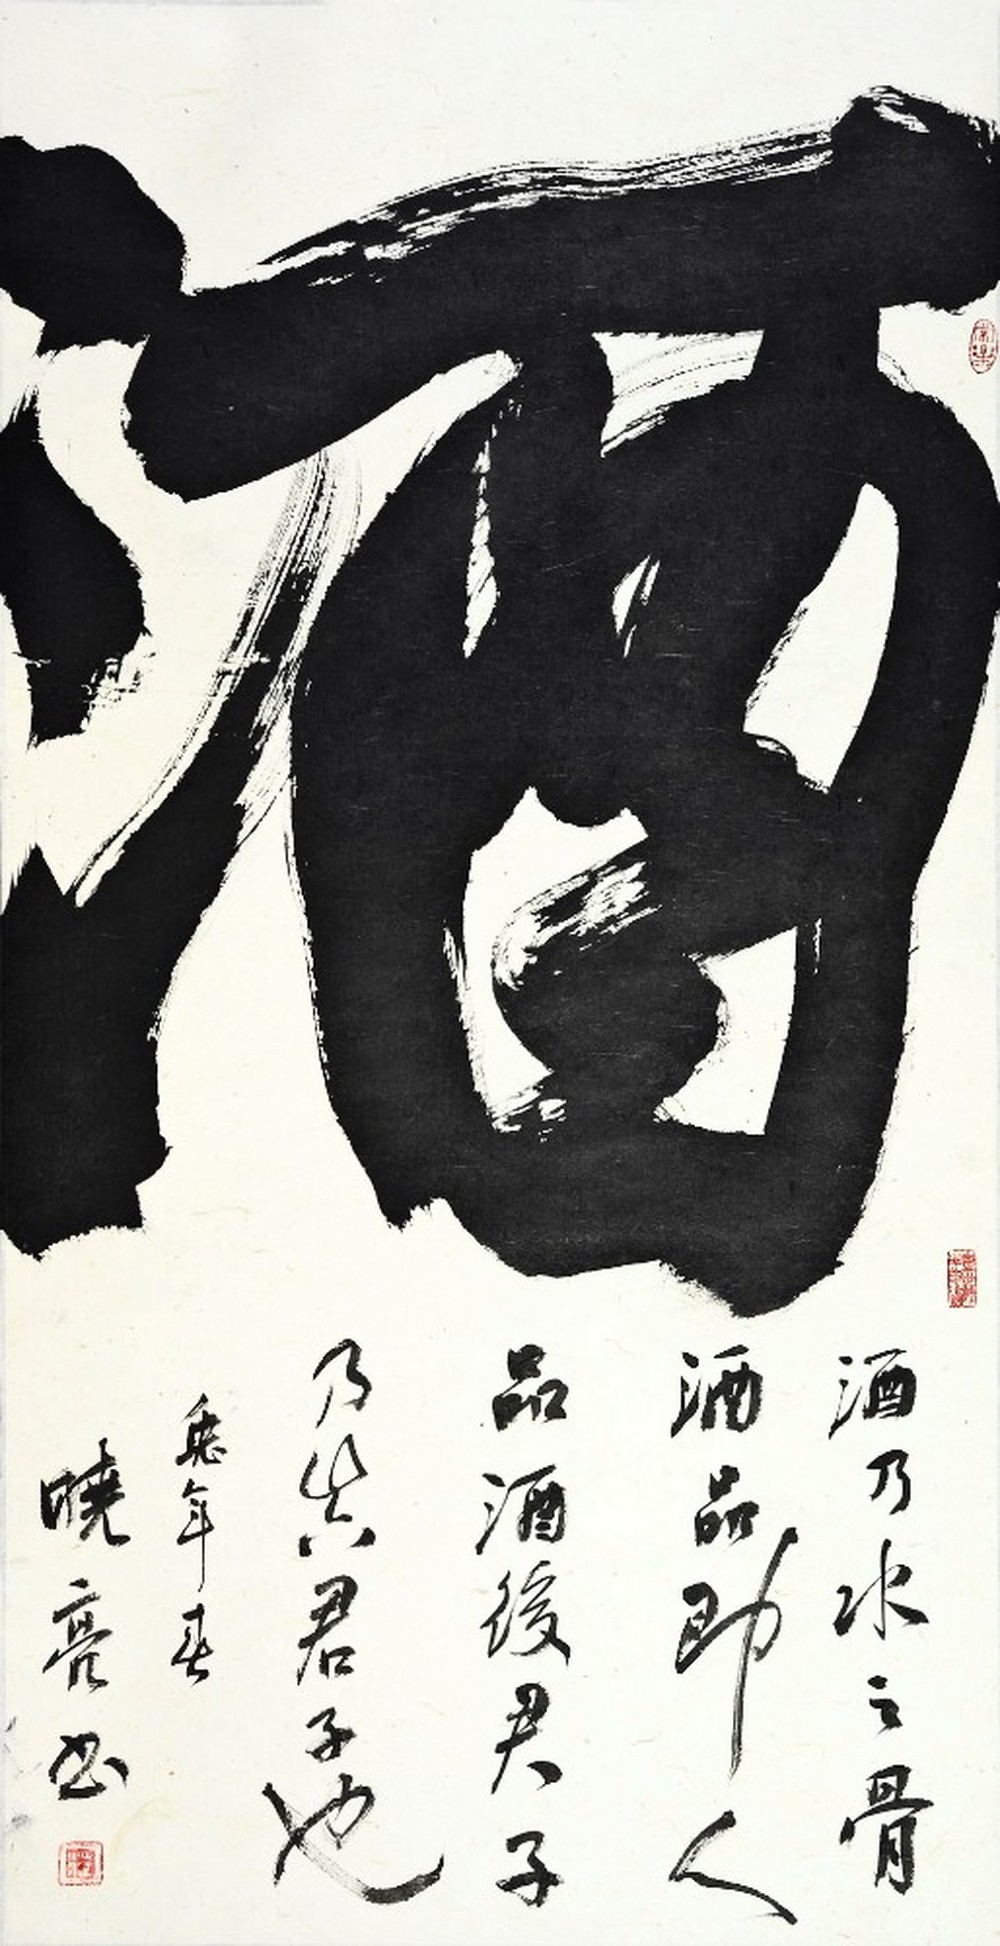 酒
酒乃水之骨
酒品即人
品酒後君子
乃真君子也
兔年春
曉亮书